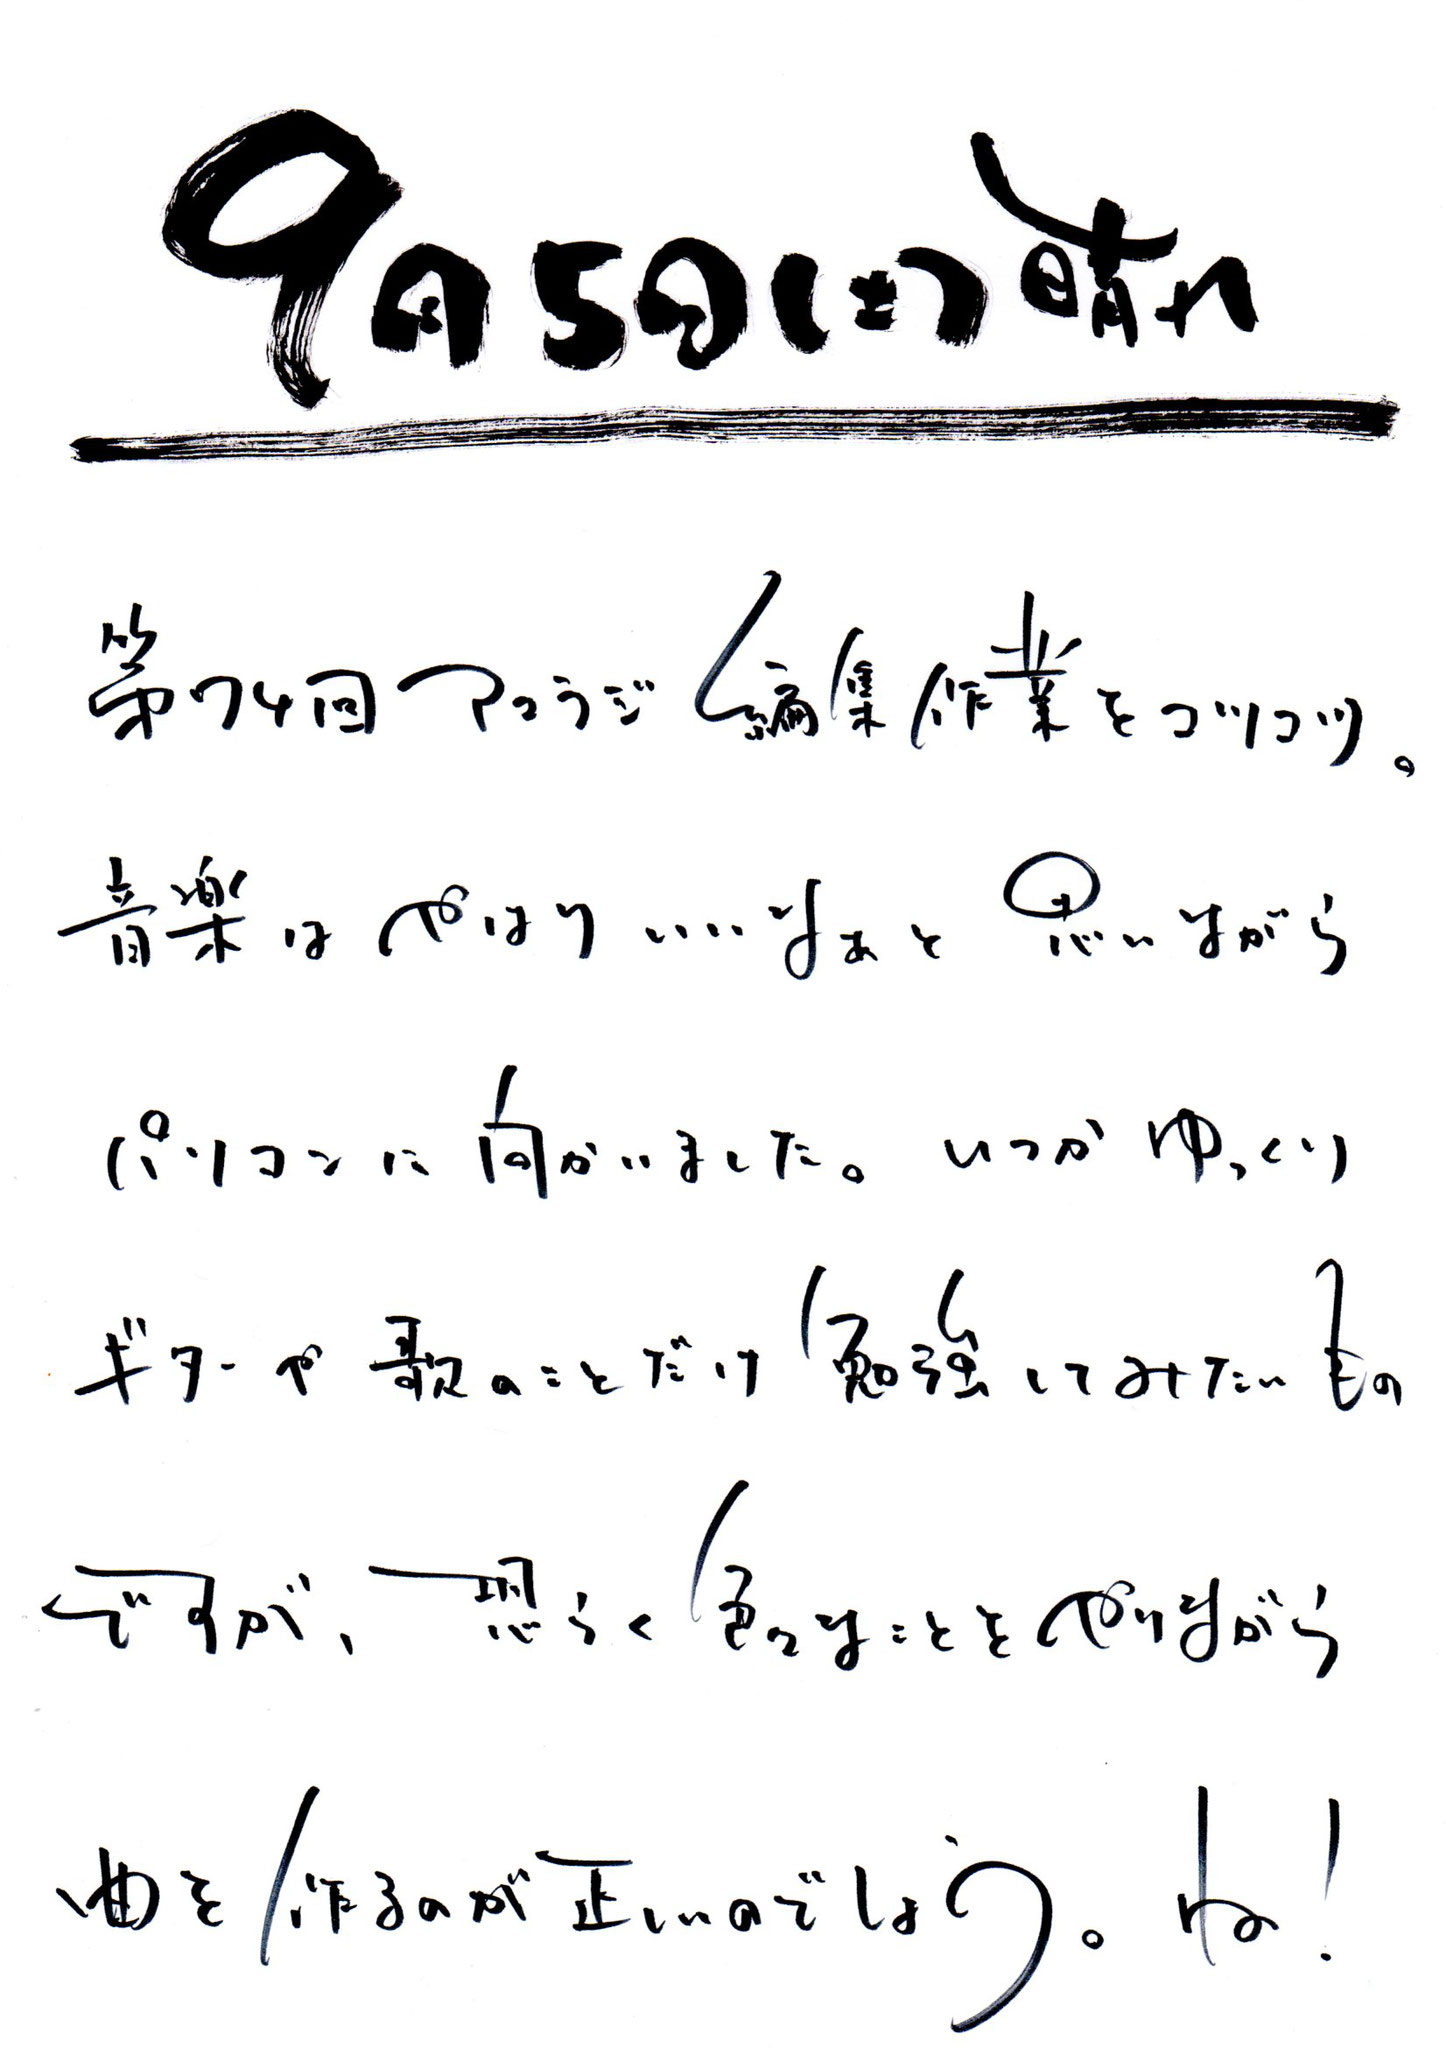 9月5日(土)晴れ
第74回アコラジ編集作業をコツコツ。
音楽はやはりいいなぁと思いながら
パソコンに向かいました。いつかゆっくり
ギターや歌のことだけ勉強してみたいもの
ですが、恐らく色々なことをやりながら
曲を作るのが正しいのでしょう。ね!